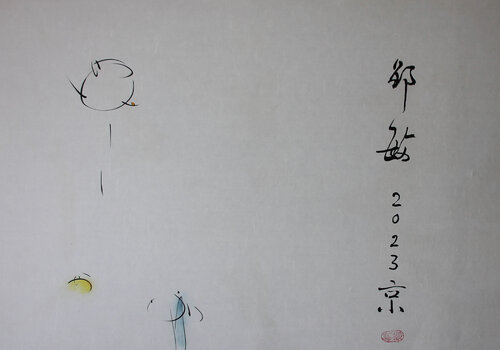 邹敏2023京